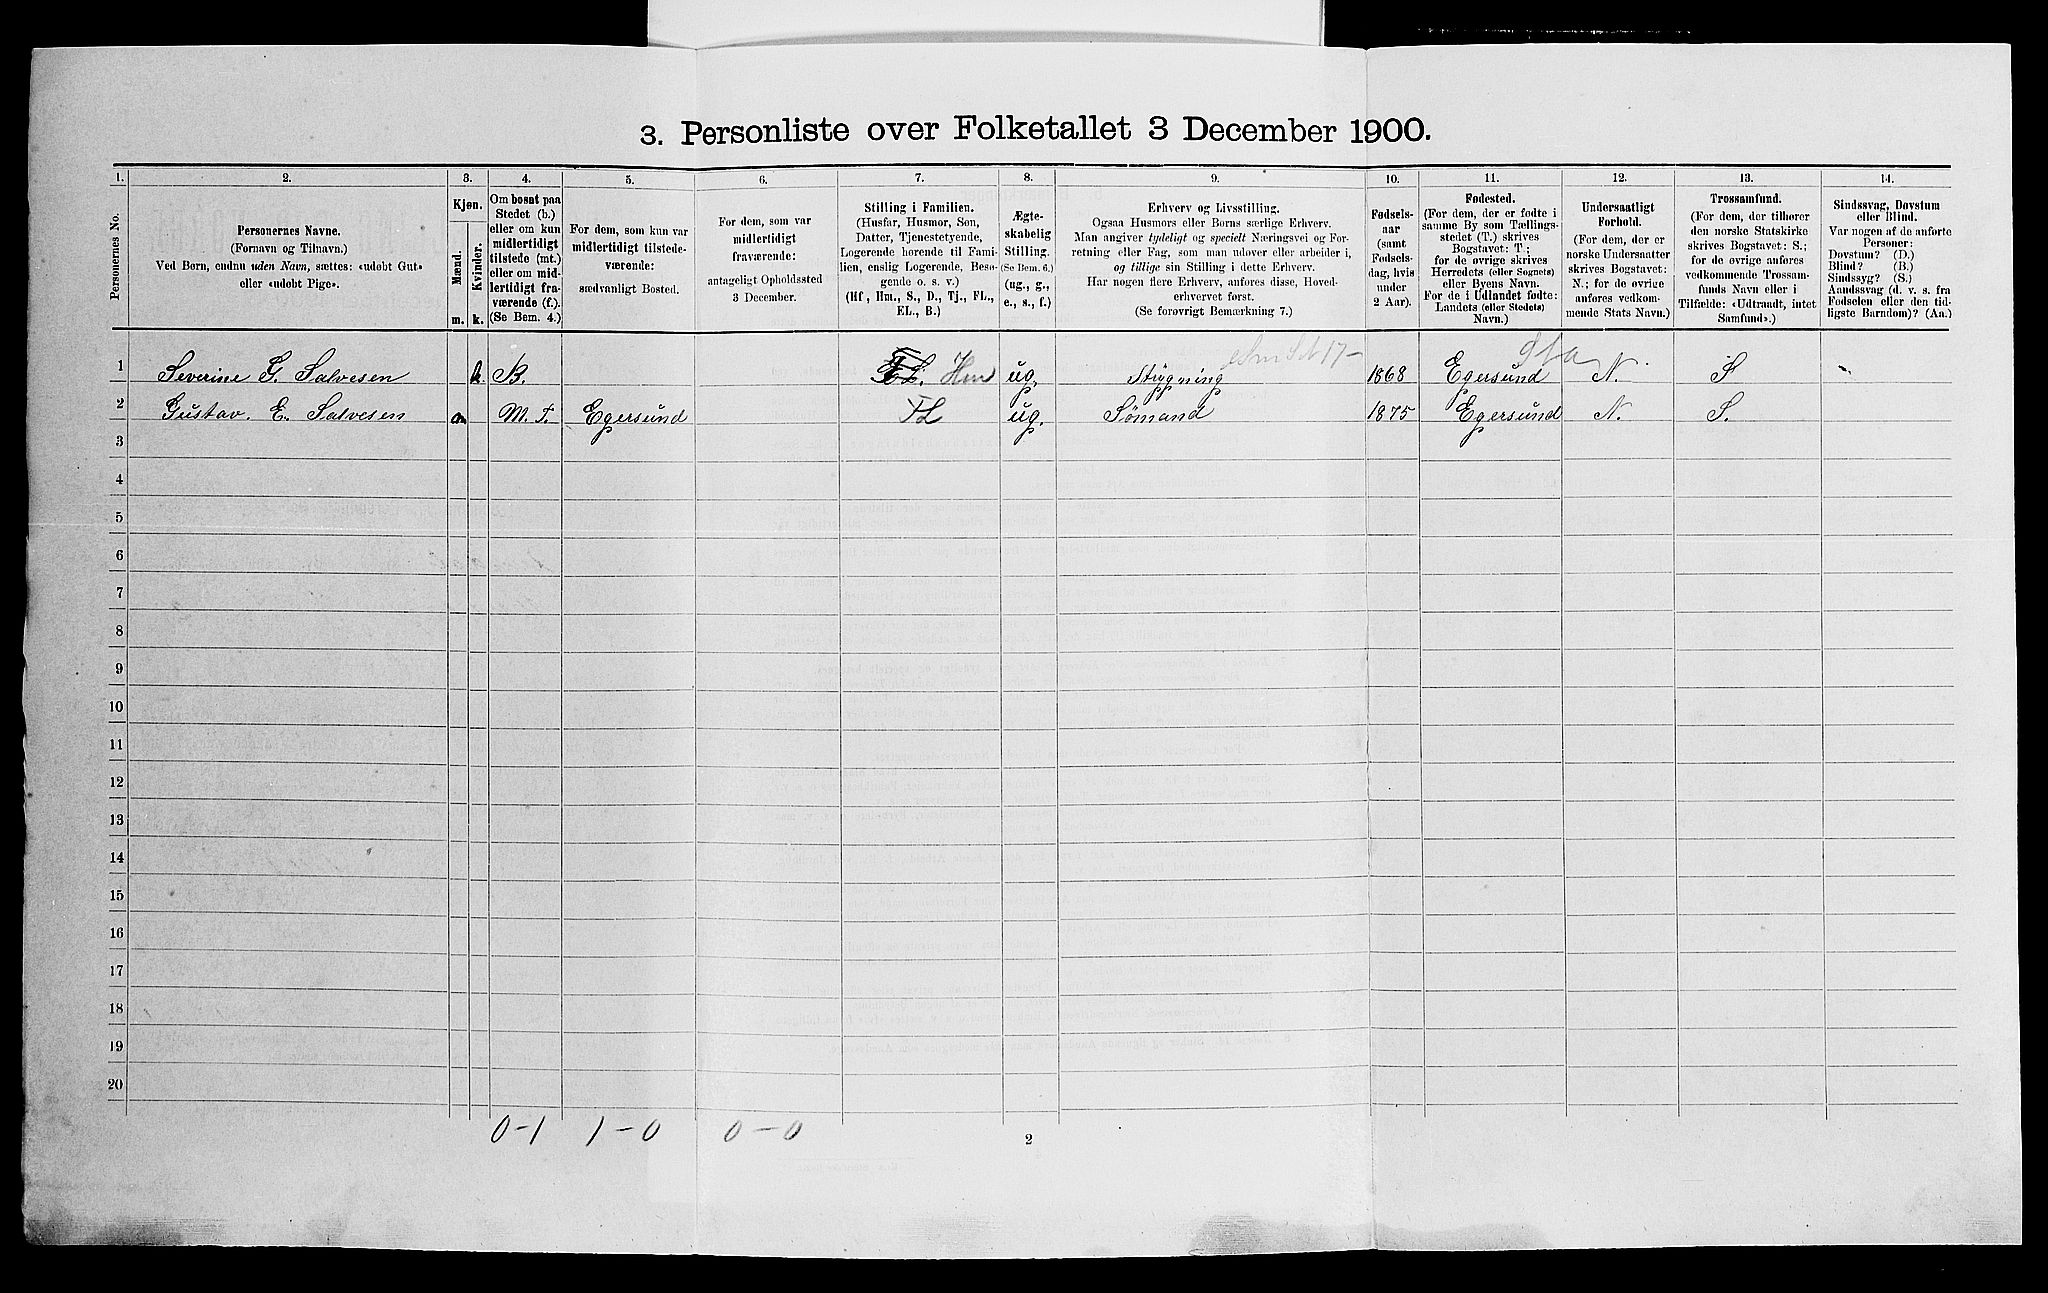 3. Personliste over Folketallet 3 December 1900.
1. 2. 3. 4. 5. 6. 7. 8. 9. 10. 11. 12. 13. 14.
Personernes No.
Personernes Navne.
(Fornavn og Tilnavn.)
Ved Børn, endnu uden Navn, sættes: «udøbt Gut»
eller «udøbt Pige».
Kjøn.
Mænd.
Kvinder.
m. k.
Om bosat paa
Stedet (b.)
eller om kun
midlertidigt
tilstede (mt.)
eller om mid-
lertidigt fra-
værende (f.).
(Se Bem. 4.)
For dem, som kun var
midlertidigt tilstede-
værende:
sædvanligt Bosted.
For dem, som var
midlertidigt
fraværende:
antageligt Opholdssted
3 December.
Stilling i Familien.
(Husfar, Husmor, Søn,
Datter, Tjenestetyende,
Logerende hørende til Fami-
lien, enslig Logerende, Besø-
gende o. s. v.)
(Hf, Hm., S., D., Tj., FL.,
EL., B.)
Ægte-
skabelig
Stilling.
(Se Bem. 6.)
(ug., g.,
e., s., f.)
Erhverv og Livsstilling.
Ogsaa Husmors eller Børns særlige Erhverv.
Man angiver tydeligt og specielt Næringsvei og For-
retning eller Fag, som man udøver eller arbeider i,
og tillige sin Stilling i dette Erhverv.
Har nogen flere Erhverv, anføres disse, Hoved-
erhvervet først.
(Se forøvrigt Bemærkning 7.)
Fødsels-
aar
(samt
Fødsels-
dag, hvis
under
2 Aar).
Fødested.
(For dem, der er fødte i
samme By som Tællings-
stedet (T.) skrives
Bogstavet: T.;
for de øvrige skrives
Herredets (eller Sognets)
eller Byens Navn.
For de i Udlandet fødte:
Landets (eller Stedets)
Navn.)
Undersaatligt
Forhold.
(For dem, der er
norske Undersaatter
skrives Bogstavet:
N.; for de øvrige
anføres vedkom-
mende Stats Navn.)
Trossamfund.
(For dem, der tilhører
den norske Statskirke
skrives Bogstavet: S.;
for de øvrige anføres
vedkommende Trossam-
funds Navn eller i
Tilfælde: «Udtraadt, intet
Samfund».)
Sindssvag, Døvstum
eller Blind.
Var nogen af de anførte
Personer:
Døvstum? (D.)
Blind? (B.)
Sindssyg? (S.)
Aandssvag (d. v. s. fra
Fødselen eller den tid-
ligste Barndom)? (Aa.)
1 Severine G. Salvesen k. B. Hm ug. Strygning 1868 Egersund N. S
2 Gustav. E. Salvesen m M. T. Egersund FL ug. Sømand 1875 Egersund N. S.
3
4
5
6
7
8
9
10
11
12
13
14
15
16
17
18
19
20
0-1 1-0 0-0
2